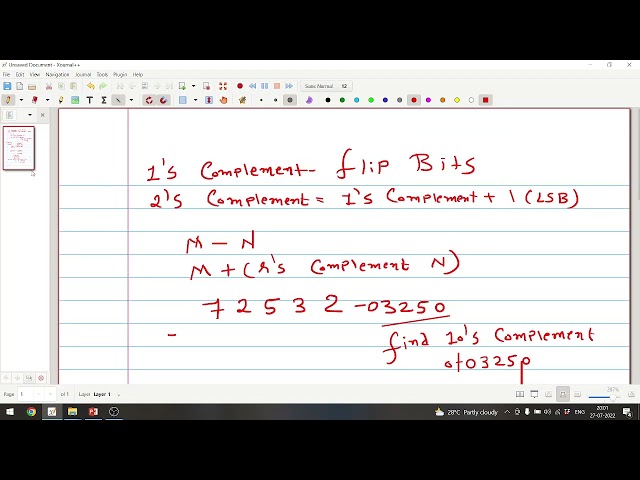 Unsaved Document - Xournal++
File Edit View Navigation Journal Tools Plugin Help
Sans Normal 12
1's Complement- flip Bits
2's Complement = 1's Complement + 1 (LSB)
M - N
M + (r's Complement N)
7 2 5 3 2 - 03250
find 10's Complement
of 03250
Page 1 of 1 Layer Layer 1 287%
28°C Partly cloudy ENG 20:01
27-07-2022